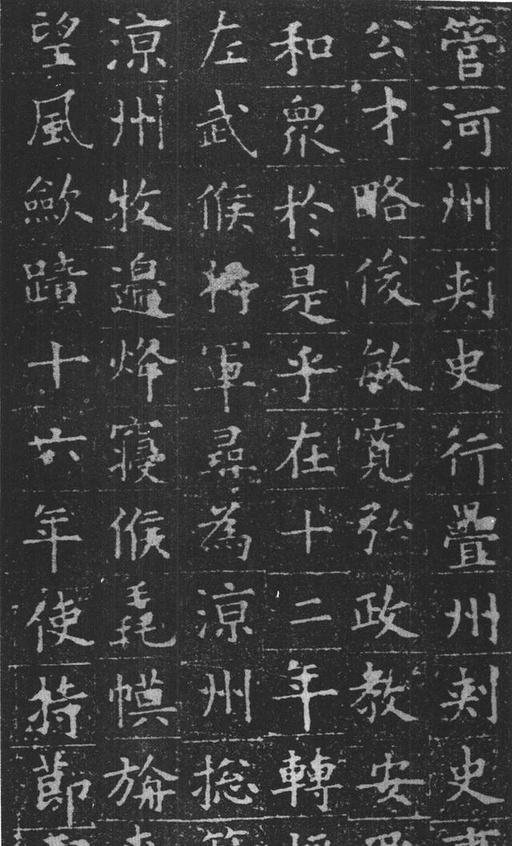 管河州刺史行疊州刺史
公才略俊敏寬弘政教安
和眾於是乎在十二年轉
左武候將軍尋為涼州揔
涼州牧邊烽寢候毳幙旃
望風歛蹟十六年使持節